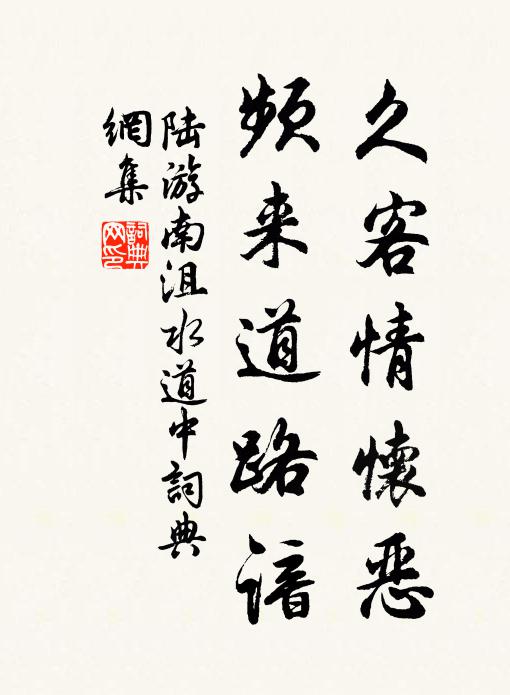 久客情懷恶
頻来道路谙
陆游南沮水道中詞典
網集
詞典网印